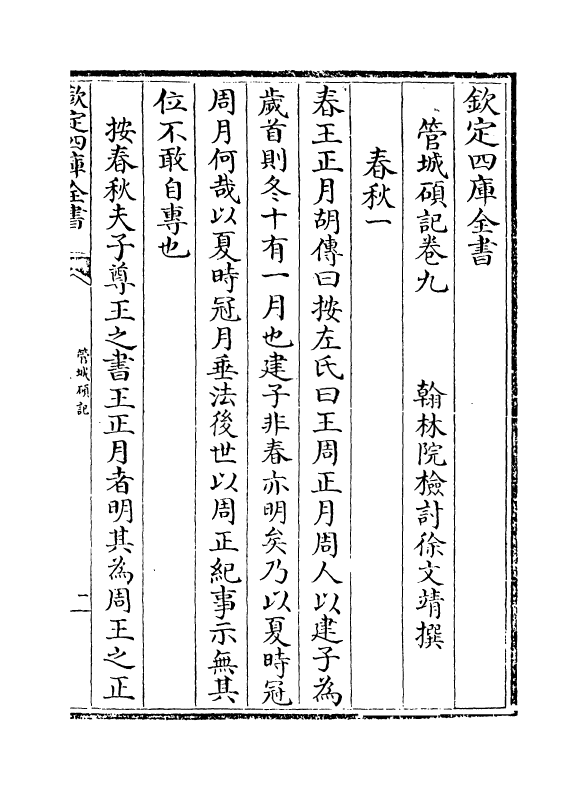 欽定四庫全書
管城碩記卷九　　　翰林院檢討徐文靖撰
春秋一
春王正月胡傳曰按左氏曰王周正月周人以建子為
歲首則冬十有一月也建子非春亦明矣乃以夏時冠
周月何哉以夏時冠月垂法後世以周正紀事示無其
位不敢自專也
按春秋夫子尊王之書王正月者明其為周王之正
欽定四庫全書
管城碩記